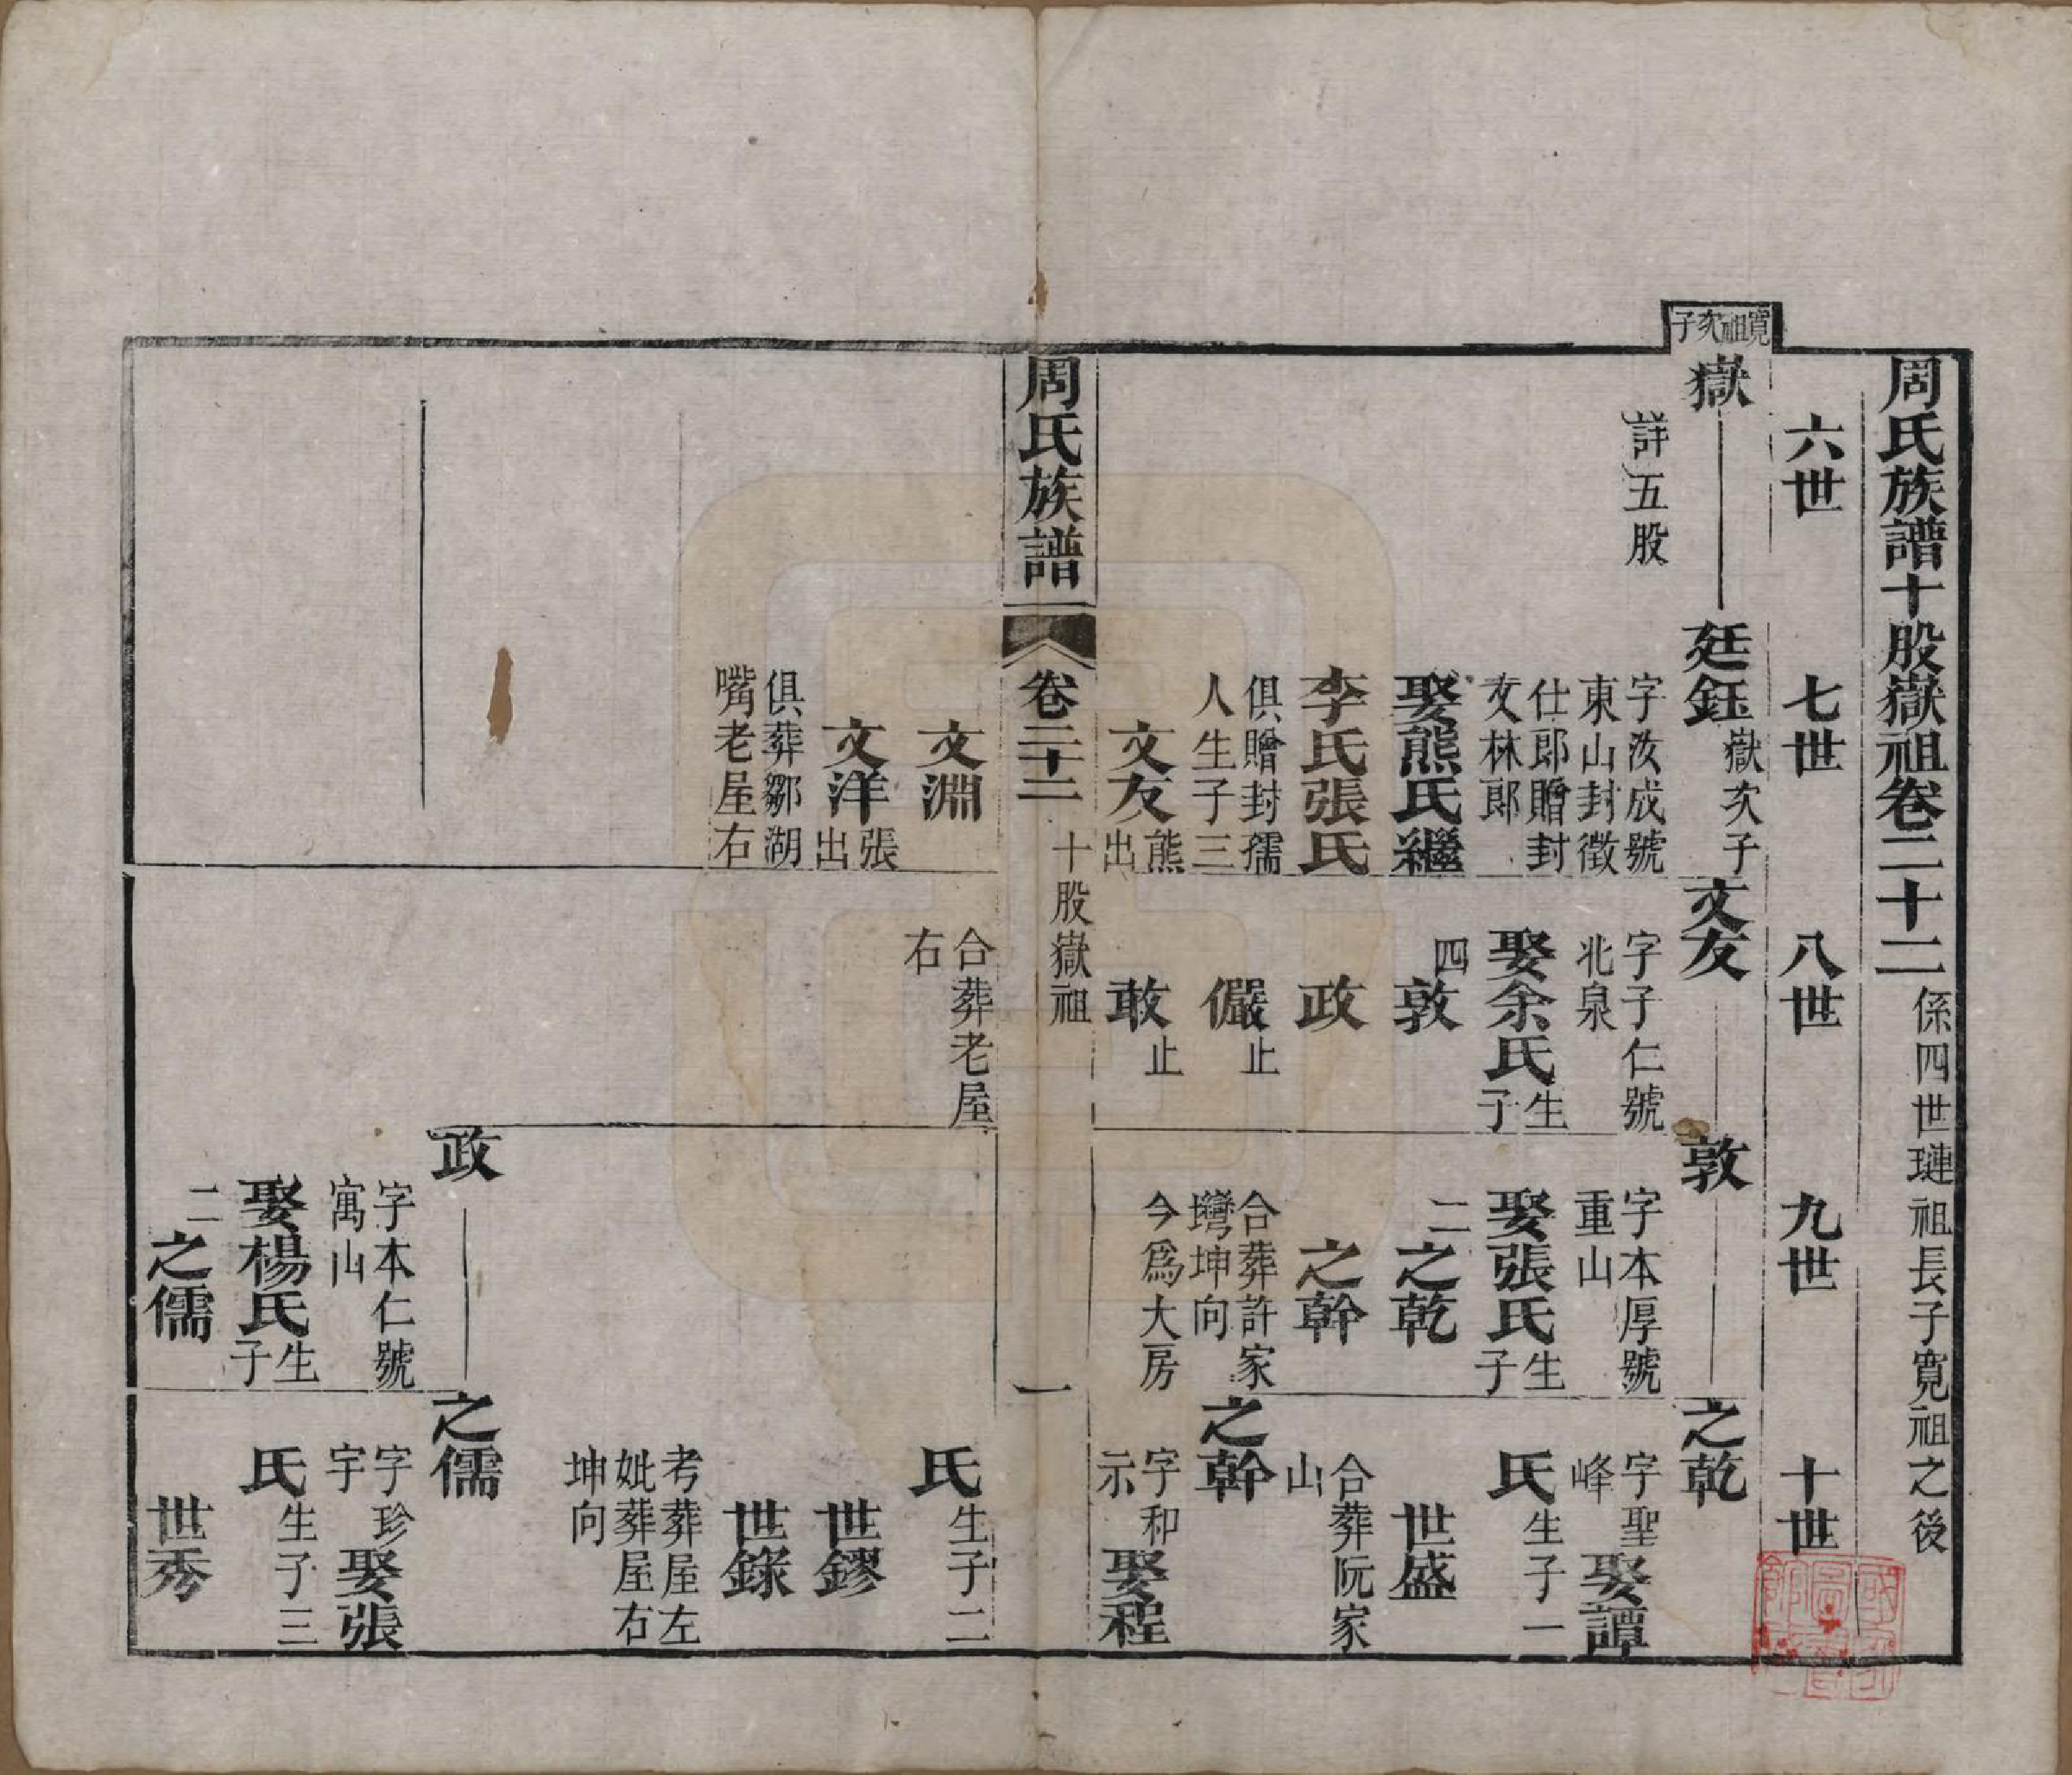 周氏族譜十股嶽祖卷二十二 係四世璉祖長子寬祖之後
六世
七世
八世
九世
十世
寬祖次子
嶽
詳五股
廷鈺 嶽次子
字汝成號
東山封徵
仕郎贈封
文林郎
娶熊氏繼
李氏張氏
俱贈封孺
人生子三
文友 熊出
文淵
文洋 張出
俱葬鄒湖
嘴老屋右
文友
字子仁號
北泉
娶余氏 生子
四
敦
政
儼 止
敢 止
合葬老屋
右
敦
字本厚號
重山
娶張氏 生子
二
之乾
之幹
合葬許家
壪坤向
今為大房
政
字本仁號
寓山
娶楊氏 生子
二
之儒
之乾
字聖峰 娶譚
氏 生子一
世盛
合葬阮家
山
之幹
字和示 娶程
氏 生子二
世鏐
世錄
考葬屋左
妣葬屋右
坤向
之儒
字珍宇 娶張
氏 生子三
世秀
周氏族譜
卷二十二
十股嶽祖
一